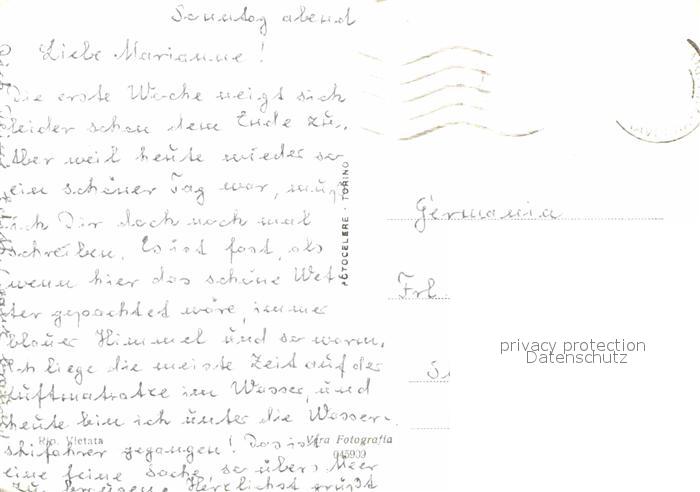 Sonntag abend
Liebe Marianne!
Die erste Woche neigt sich
leider schon dem Ende zu.
Aber weil heute wieder so
ein schöner Tag war, muß
ich Dir doch noch mal
schreiben. Es ist fast, als
wenn hier das schöne Wet-
ter gepachtet wäre, immer
blauer Himmel und so warm.
Ich liege die meiste Zeit auf der
Luftmatratze im Wasser, und
heute bin ich unter die Wasser-
skifahrer gegangen! Das ist
eine feine Sache, so übers Meer
zu Herzlichst grüßt
FOTOCELERE - TORINO
Germania
Frl
privacy protection
Datenschutz
Rip. Vietata
Vera Fotografia
045909